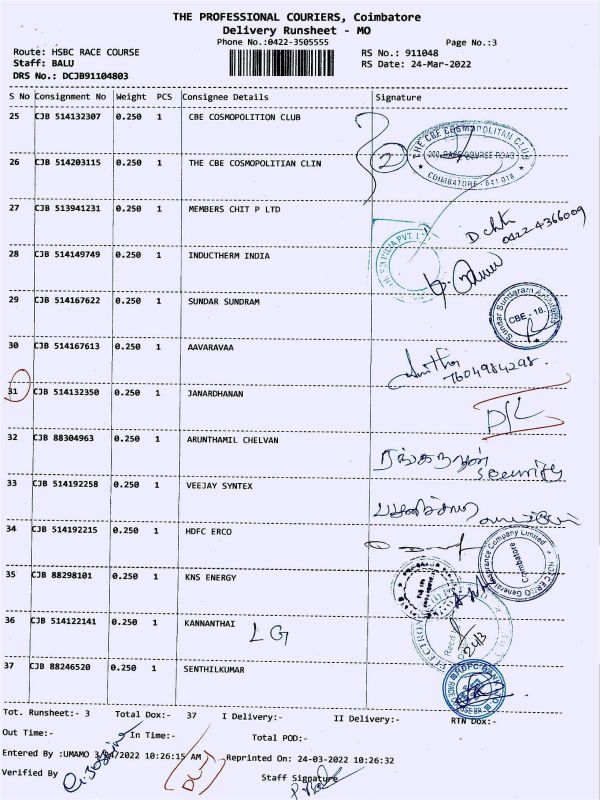 THE PROFESSIONAL COURIERS, Coimbatore
Delivery Runsheet - MO
Phone No.:0422-3505555
Page No.:3
Route: HSBC RACE COURSE
RS No.: 911048
Staff: BALU
RS Date: 24-Mar-2022
DRS No.: DCJB91104803
S No Consignment No Weight PCS Consignee Details Signature
25 CJB 514132307 0.250 1 CBE COSMOPOLITION CLUB
THE CBE COSMOPOLITAN CLUB
RACE COURSE ROAD
COIMBATORE - 641 018
26 CJB 514203115 0.250 1 THE CBE COSMOPOLITIAN CLIN
2
27 CJB 513941231 0.250 1 MEMBERS CHIT P LTD
0422 4366009
28 CJB 514149749 0.250 1 INDUCTHERM INDIA
INDIA PVT. LTD
29 CJB 514167622 0.250 1 SUNDAR SUNDRAM
Sundar Sundaram Architects
CBE - 18.
30 CJB 514167613 0.250 1 AAVARAVAA
7604984298.
31 CJB 514132350 0.250 1 JANARDHANAN
D/L
32 CJB 88304963 0.250 1 ARUNTHAMIL CHELVAN
security
33 CJB 514192258 0.250 1 VEEJAY SYNTEX
34 CJB 514192215 0.250 1 HDFC ERCO
HDFC ERGO General Insurance Company Limited
Coimbatore
35 CJB 88298101 0.250 1 KNS ENERGY
36 CJB 514122141 0.250 1 KANNANTHAI
LG
37 CJB 88246520 0.250 1 SENTHILKUMAR
HDFC BANK
Tot. Runsheet:- 3 Total Dox:- 37 I Delivery:- II Delivery:- RTN Dox:-
Out Time:- In Time:- Total POD:-
Entered By :UMAMO 3/24/2022 10:26:15 AM Reprinted On: 24-03-2022 10:26:32
Verified By
Staff Signature